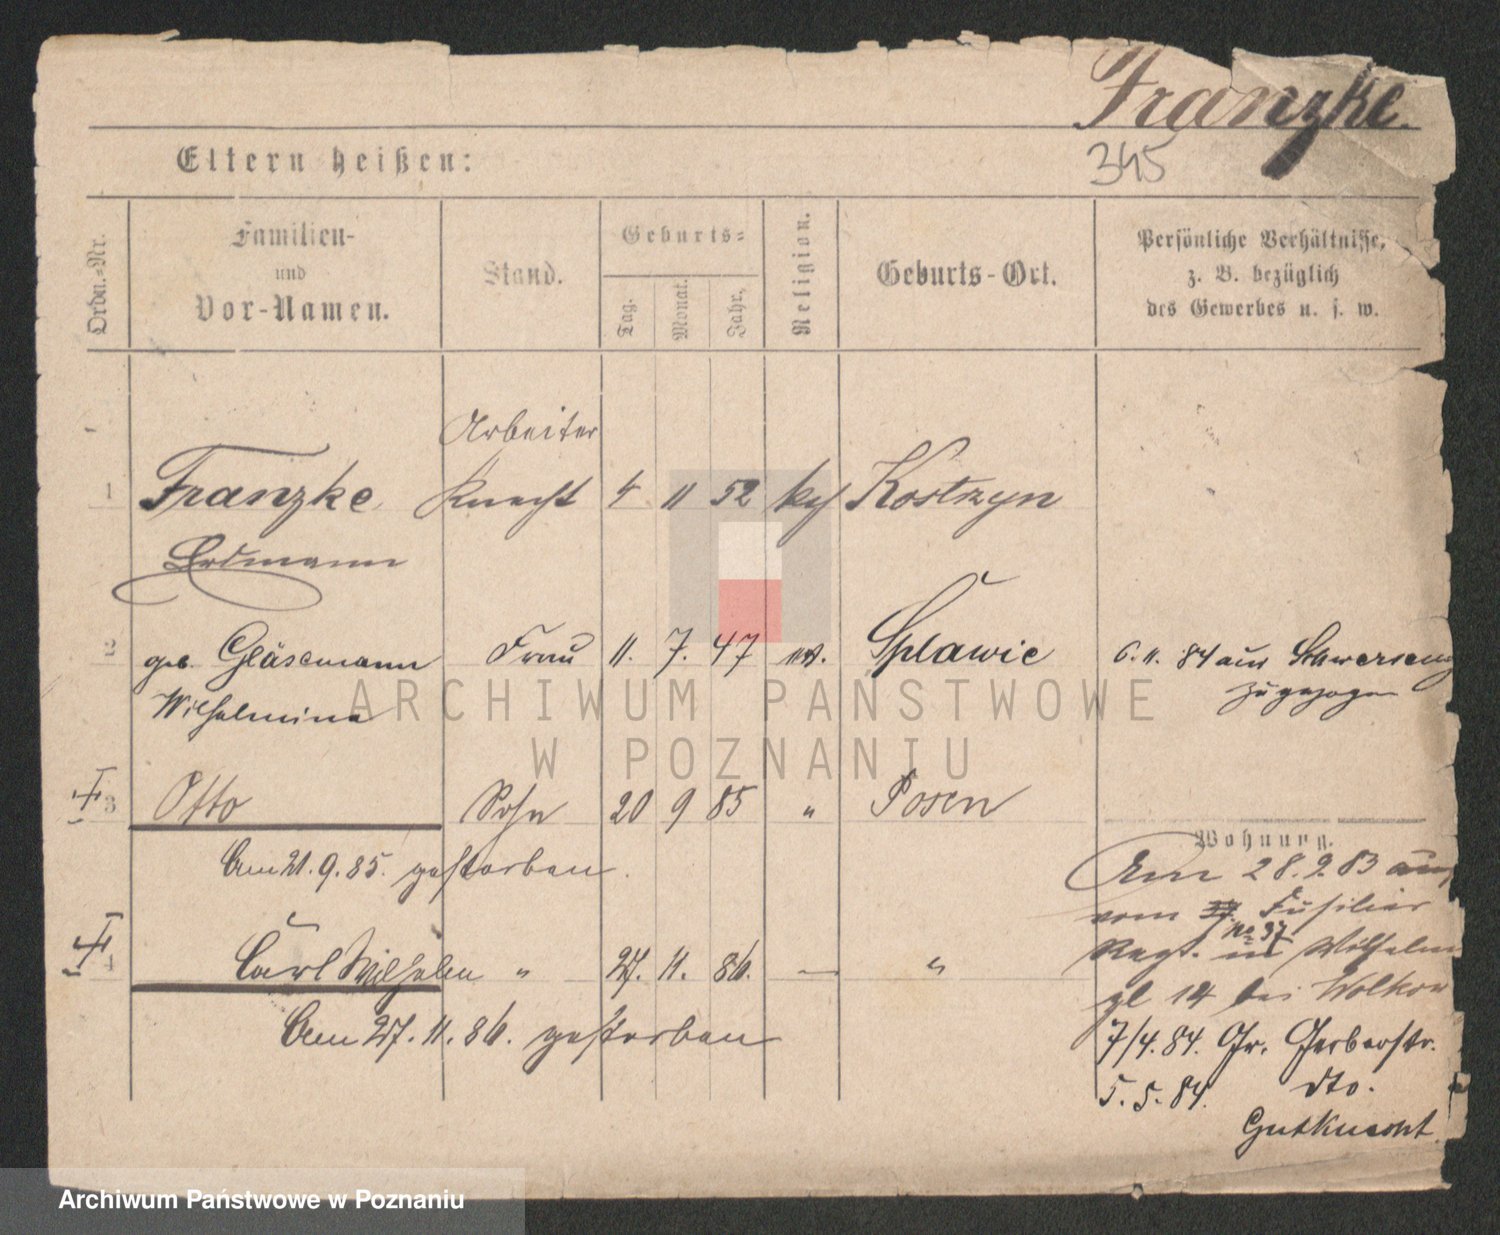 Franzke.
345
Eltern heißen:
Ordn.-Nr.
Familien-
und
Vor-Namen.
Stand.
Geburts-
Tag.
Monat.
Jahr.
Religion.
Geburts-Ort.
Persönliche Verhältnisse,
z. B. bezüglich
des Gewerbes u. s. w.
Arbeiter
1 Franzke Knecht 4 11 52 Kostrzyn
Erdmann
2 geb. Gläsemann Frau 11. 7. 47 ev. Splawie 6. 11. 84 aus Schwersenz
Wilhelmine zugezogen
3 Otto Sohn 20 9 85 " Posen
Am 21. 9. 85. gestorben.
Wohnung.
Am 28. 9. 83 aus
vom Füsilier
No 37
Regt. in Wilhelm
4 Carl Wilhelm " 27. 11. 86. — "
pl 14 bei Wolkow
Am 27. 11. 86. gestorben
7/4. 84. Gr. Gerberstr.
5. 5. 84. dto.
Gutknecht
ARCHIWUM PAŃSTWOWE
W POZNANIU
Archiwum Państwowe w Poznaniu